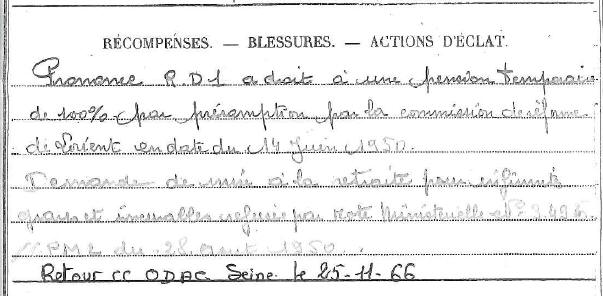 RÉCOMPENSES. — BLESSURES. — ACTIONS D'ÉCLAT.
Prononcé R D 1 a droit à une pension temporaire
de 100% par présomption par la commission de réforme
de Lorient en date du 14 Juin 1950.
Demande de mise à la retraite pour infirmités
graves et incurables refusée par Note Ministérielle N°
PM2 du 28 Août 1950.
Retour CC ODAC Seine le 25-11-66